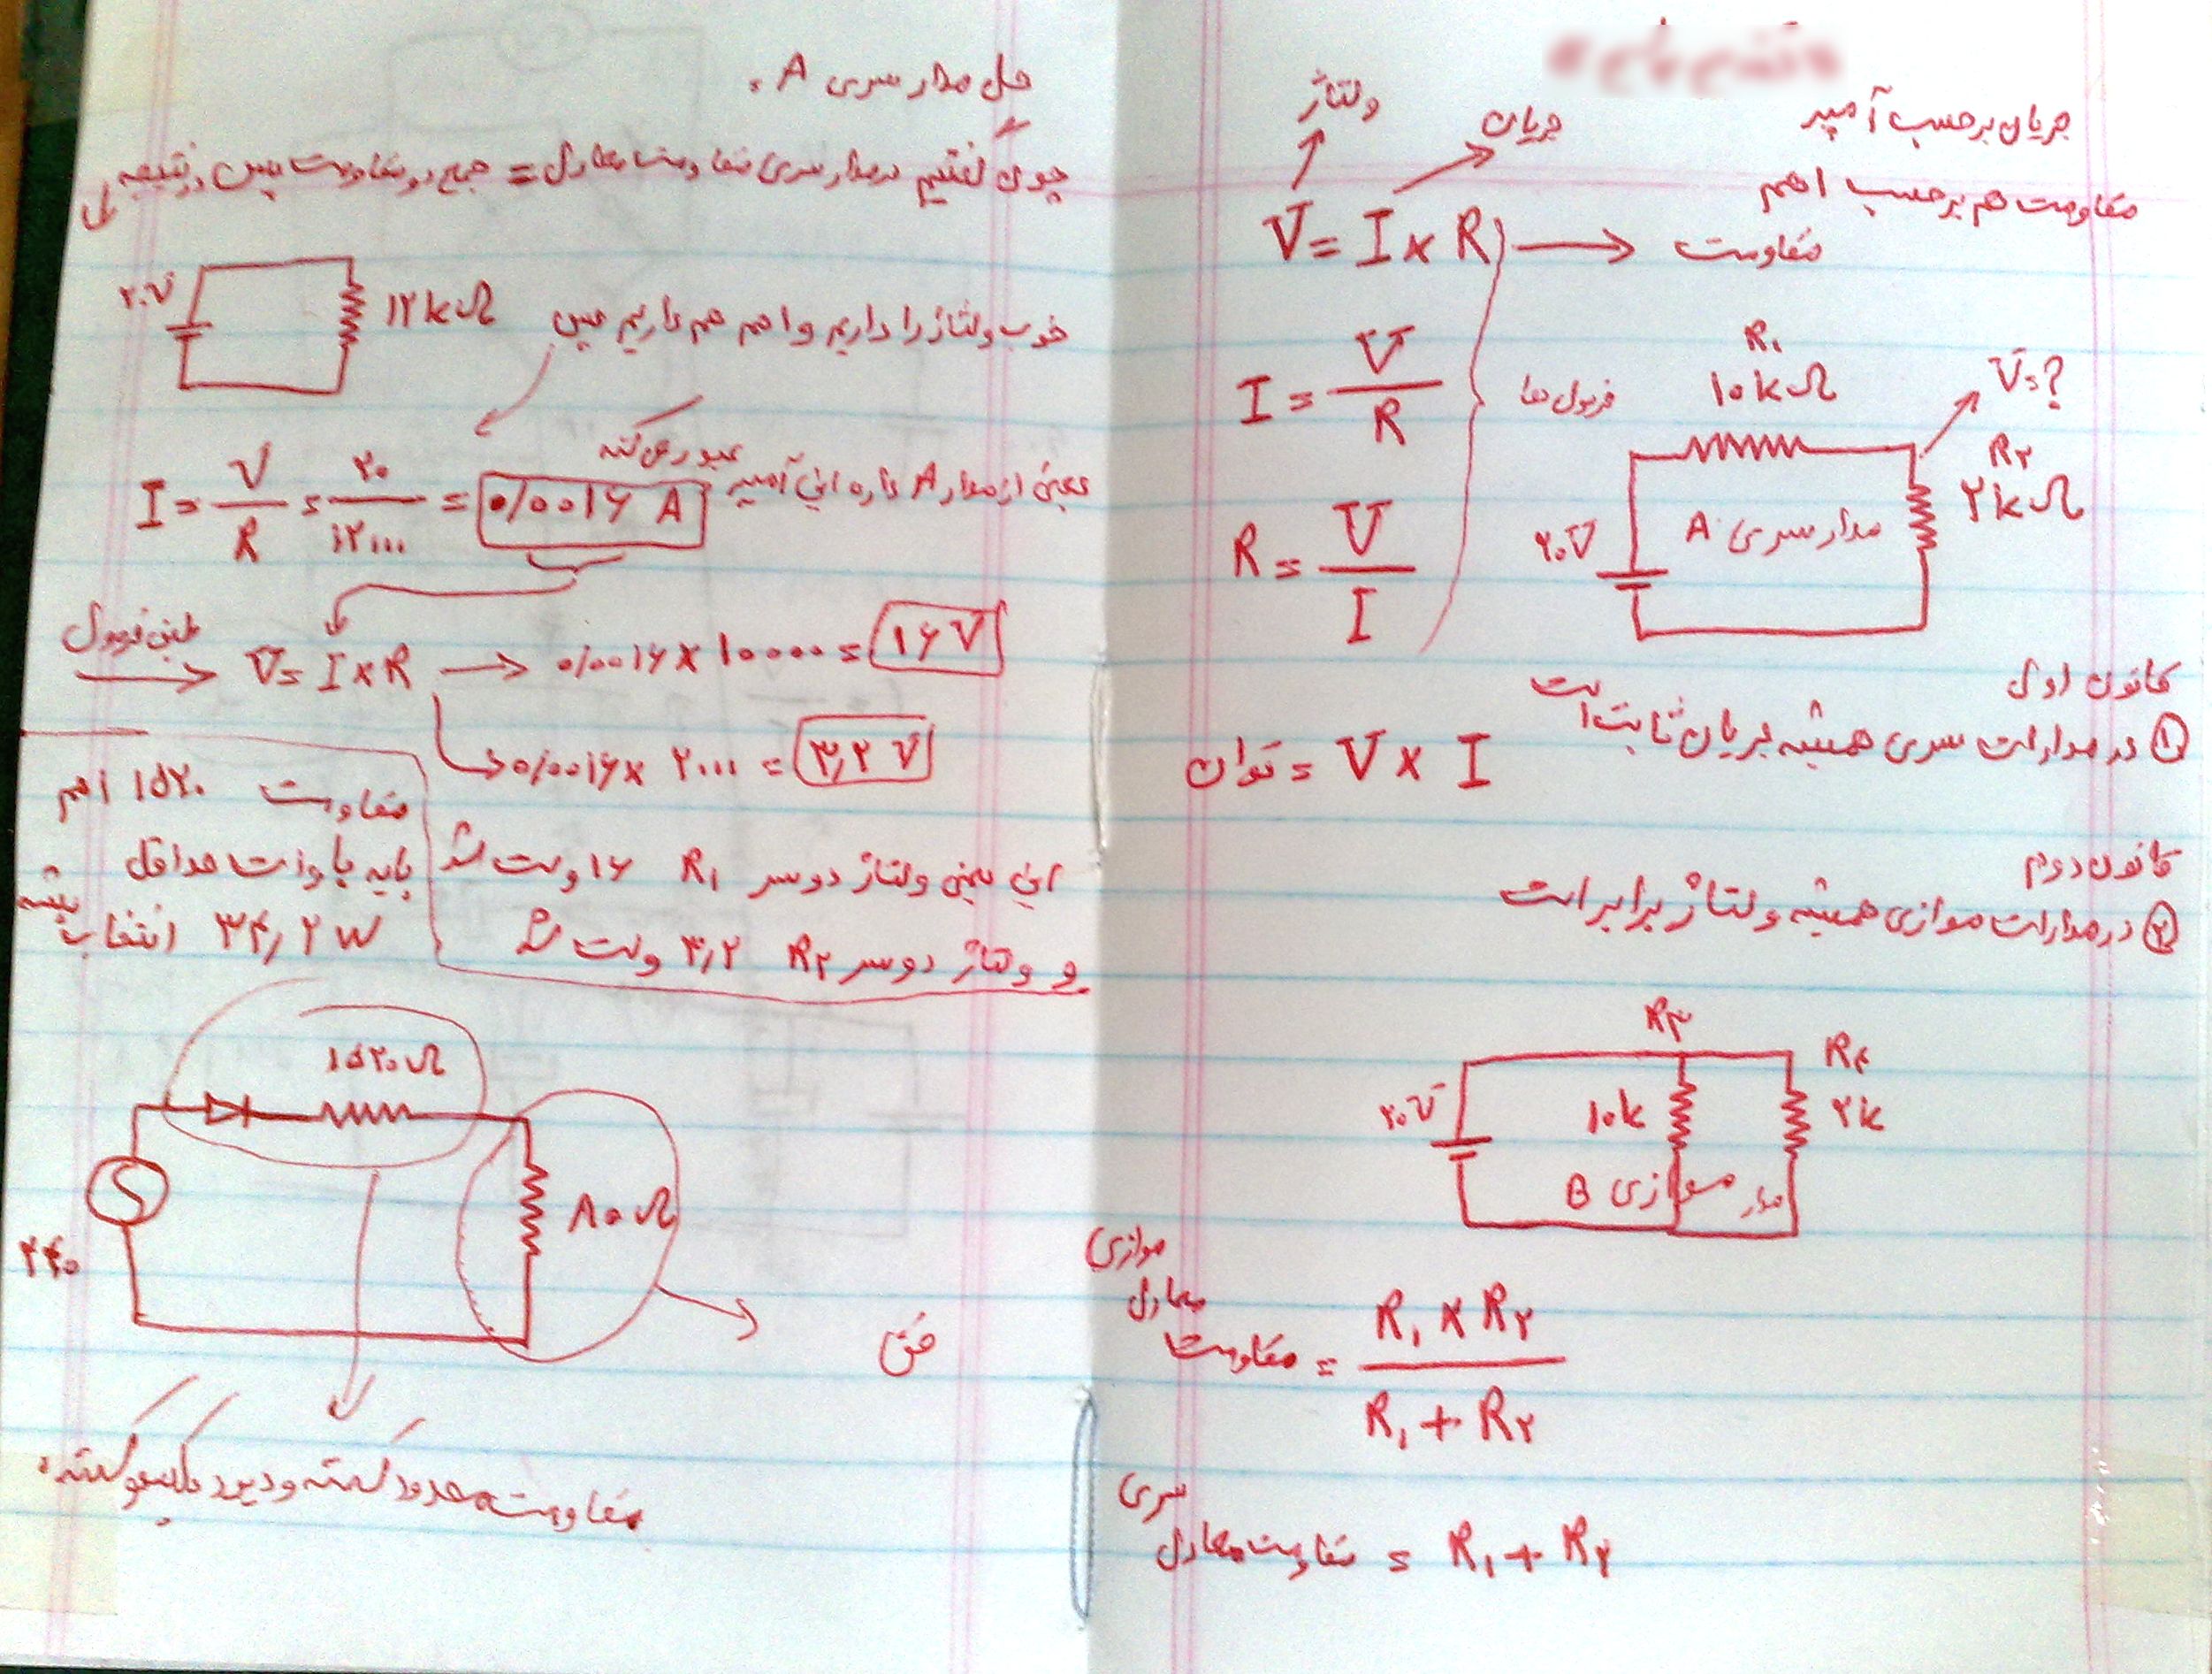 جریان برحسب آمپر
مقاومت هم برحسب اهم
ولتاژ
جریان
V = I × R → مقاومت
I = V / R
فرمول ها
R = V / I
R۱
۱۰kΩ
V=?
R۲
۲kΩ
۲۰V
مدار سری A
قانون اول
① در مدارات سری همیشه جریان ثابت است
توان = V × I
قانون دوم
② در مدارات موازی همیشه ولتاژ برابر است
R۳
R۴
۲۰V
۱۰k
۲k
مدار موازی B
موازی
معادل
مقاومت = R۱ × R۲ / R۱ + R۲
سری
مقاومت معادل = R۱ + R۲
حل مدار سری A
چون گفتیم در مدار سری مقاومت معادل = جمع دو مقاومت پس در نتیجه
۲۰V
۱۲kΩ
خوب ولتاژ را داریم و اهم هم داریم پس
I = V / R = ۲۰ / ۱۲۰۰۰ = ۰/۰۰۱۶ A
یعنی از مدار A داره این آمپر
عبور می کنه
طبق فرمول
V = I × R → ۰/۰۰۱۶ × ۱۰۰۰۰ = ۱۶ V
۰/۰۰۱۶ × ۲۰۰۰ = ۳٫۲ V
این یعنی ولتاژ دوسر R۱ ۱۶ ولت شد
و ولتاژ دوسر R۲ ۳٫۲ ولت شد
مقاومت ۱۵۲۰ اهم
باید با وات حداقل
۳۴٫۲ W انتخاب بشه
۱۵۲۰Ω
۸۰Ω
۲۴۰
مقاومت محدود کننده و دیود یکسو کننده